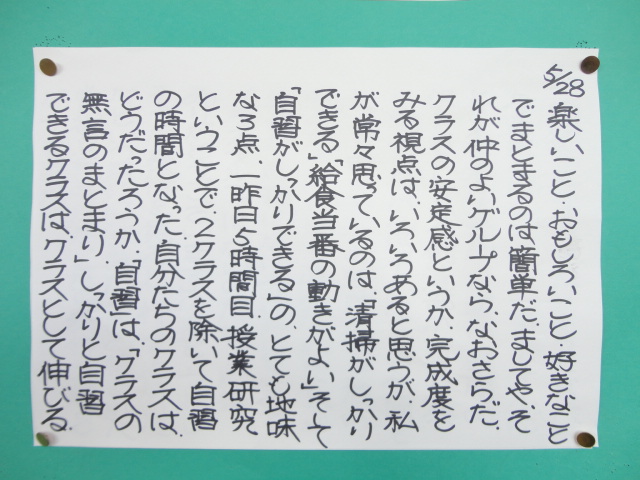 5/28 楽しいこと・おもしろいこと・好きなこと
でまとまるのは簡単だ。ましてや、そ
れが仲のよいグループなら、なおさらだ。
クラスの安定感というか、完成度を
みる視点は、いろいろあると思うが、私
が常々思っているのは、「清掃がしっかり
できる」「給食当番の動きがよい」そして
「自習がしっかりできる」の、とても地味
な3点。一昨日5時間目、授業研究
ということで、2クラスを除いて自習
の時間となった。自分たちのクラスは、
どうだったろうか。「自習は、「クラスの
無言のまとまり」。しっかりと自習
できるクラスは、クラスとして伸びる。